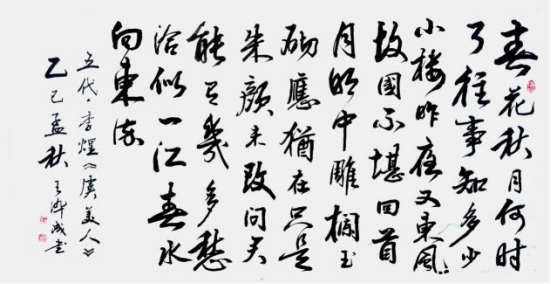 春花秋月何时
了往事知多少
小楼昨夜又東風
故國不堪回首
月明中雕欄玉
砌應猶在只是
朱顏未改问君
能有幾多愁
恰似一江春水
向東流
五代·李煜《虞美人》
乙巳孟秋 成书